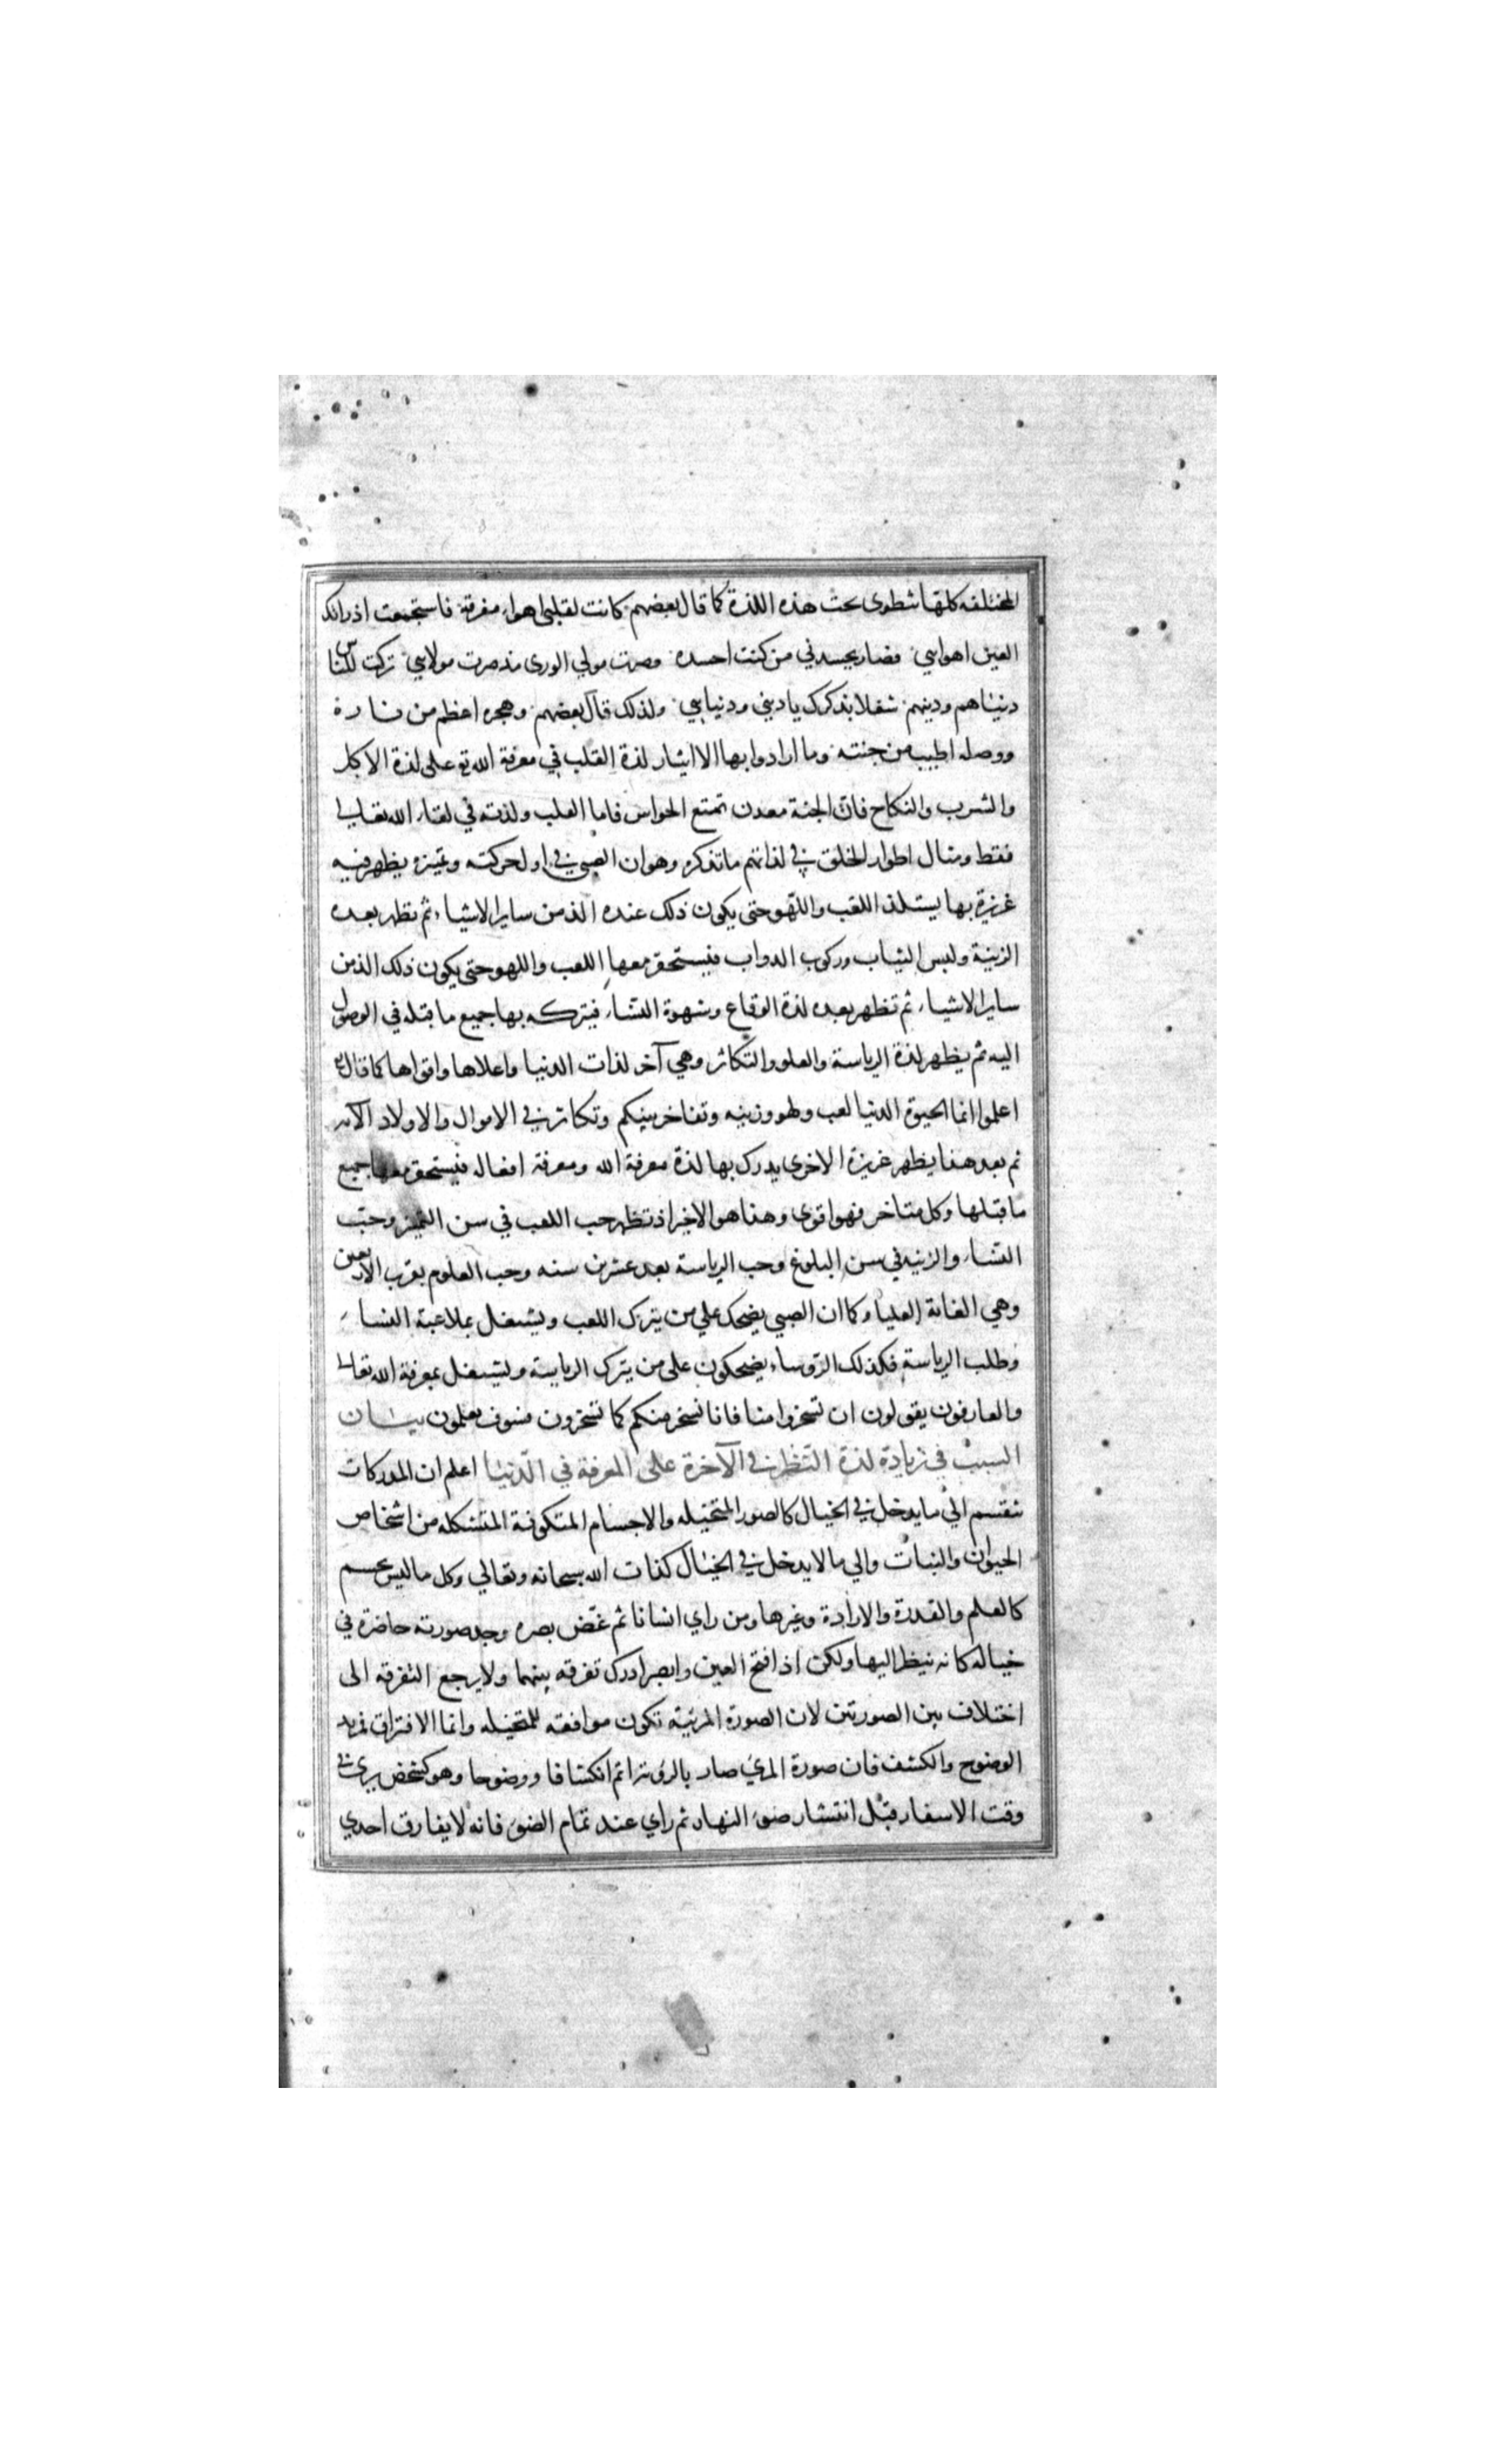 المختلفه كلها شطوى تحت هذه اللذة كما قال بعضهم كانت لقلبي اهواء مفرقة فاستجمعت اذ راتك
العين اهواىي فصار يحسدني من كنت احسده وصرت مولي الورى مذ صرت مولاىي تركت للناس
دنياهم ودينهم شغلا بذكرك يا ديني ودنياىي ولذلك قال بعضهم وهجره اعظم من ناره
ووصله اطيب من جنته وما ارادوا بها الا ايثار لذة القلب في معرفة الله تع على لذة الاكل
والشرب والنكاح فان الجنة معدن تمتع الحواس فاما القلب ولذته في لقاء الله تعالي
فقط ومثال اطوار الخلق في لذاتهم ما تذكره وهو ان الصبي في اول حركته وتميزه يظهر فيه
غريزة بها يستلذ اللعب واللهو حتى يكون ذلك عنده الذ من ساير الاشياء ثم تظهر بعده
الزينة ولبس الثياب وركوب الدواب فيستحقر معها اللعب واللهو حتى يكون ذلك الذ من
ساير الاشياء ثم تظهر بعده لذة الوقاع وشهوة النساء فيتركه بها جميع ما قبله في الوصول
اليه ثم يظهر لذة الرياسة والعلو والتكاثر وهي آخر لذات الدنيا واعلاها واقواها كما قال تع
اعلموا انما الحيوة الدنيا لعب ولهو وزينه وتفاخر بينكم وتكاثر في الاموال والاولاد الآيه
ثم بعد هذا يظهر غريزة الاخرى يدرك بها لذة معرفة الله ومعرفة افعاله فيستحقر معها جميع
ما قبلها وكل متاخر فهو اقوى وهذا هو الاخير اذ تظهر حب اللعب في سن التميز وحب
النساء والزينه في سن البلوغ وحب الرياسة بعد عشرين سنه وحب العلوم بقرب الاربعين
وهي الغاية العليا وكما ان الصبي يضحك علي من يترك اللعب ويشتغل بملاعبة النساء
وطلب الرياسة فكذلك الرؤساء يضحكون على من يترك الرياسة ويشتغل بمعرفة الله تعالى
والعارفون يقولون ان تسخروا منا فانا نسخر منكم كما تسخرون فسوف تعلمون بيان
السبب في زيادة لذة النظر في الآخرة على المعرفة في الدنيا اعلم ان المدركات
تنقسم الي ما يدخل في الخيال كالصور المتخيله والاجسام المتكونة المتشكله من اشخاص
الحيوان والنبات والي ما لا يدخل في الخيال كذات الله سبحانه وتعالي وكل ما ليس بجسم
كالعلم والقدرة والارادة وغيرها ومن راي انسانا ثم غض بصره وجد صورته حاضرة في
خياله كانه ينظر اليها ولكن اذا فتح العين وابصر ادرك تفرقه بينهما ولا يرجع التفرقه الى
اختلاف بين الصورتين لان الصورة المرئية تكون موافقه للمتخيله وانما الافتراق بمزيد
الوضوح والكشف فان صورة المرئي صار بالرؤية اتم انكشافا ووضوحا وهو كشخص يرى في
وقت الاسفار قبل انتشار ضوء النهار ثم راي عند تمام الضوء فانه لا يفارق احدي